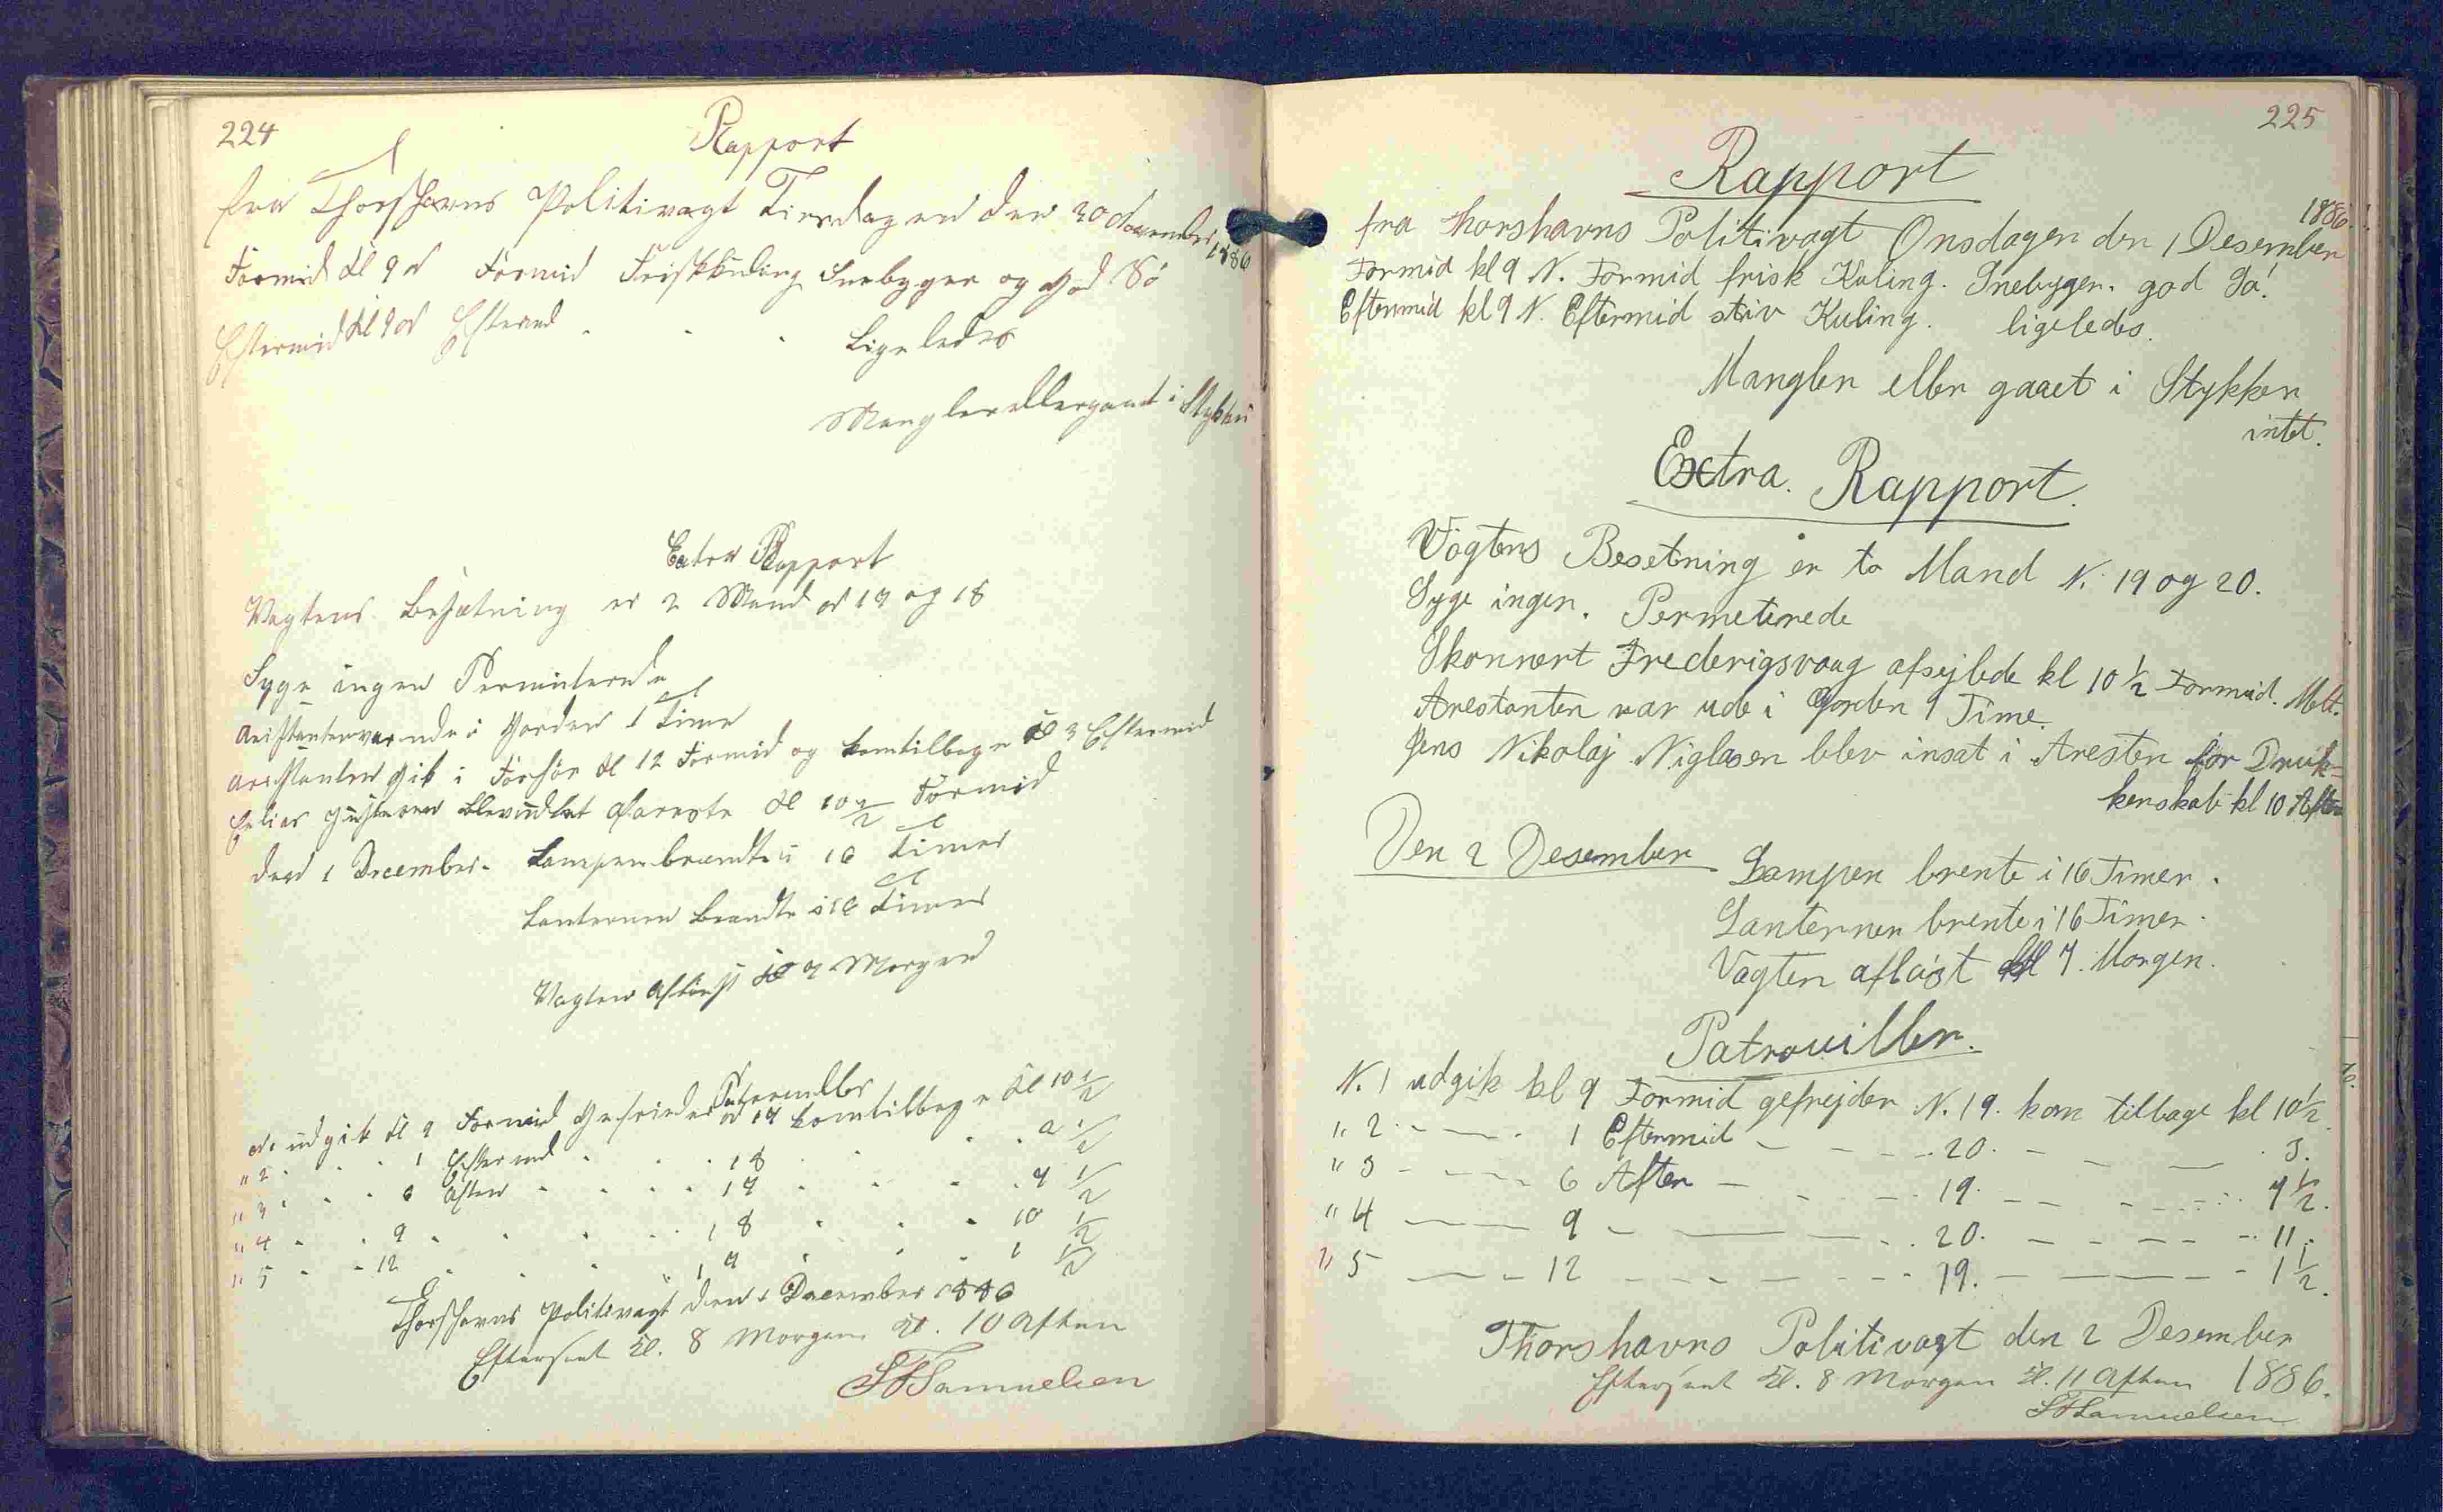 224
Rapport
fra Thorshavns Politivagt Tirsdagen den 30 November 1886
Formid Kl 9 N Formid Friskkuling Snebyger og God Sø
Eftermid Kl 9 N Eftermd - - - Ligeledes
Mangler eller gaaet i Stykker
Extra Rapport
Vagtens Besætning er 2 Mand N 17 og 18
Syge ingen Permiterede
Arrestanten var ude i Gorden 1 Time
Arrestanten Gik i Forhør Kl 12 Formid og kom tilbage Kl 3 Eftermid
blev Kl 10 1/2 Formid
den 1 December. Lampen brændte i 16 Timer
Lanternen Brændte i 16 Timer
Vagten Afløst Kl 7 Morgen
Patrouiller
N1 udgik Kl 9 Formid Gefreider N 17 kom tilbage Kl 10 1/2
" 2 - - - 1 Eftermd - - - 18 - - - 2 1/2
" 3 - - - 6 Aften - - - 17 - - - 7 1/2
" 4 - - 9 - - - - 18 - - - 10 1/2
" 5 - - 12 - - - - 17 - - - 1 1/2
Thorshavns Politivagt den 1 December 1886
Efterseet Kl. 8 Morgen Kl. 10 Aften
Samuelsen
225
Rapport
1886.
fra Thorshavns Politivagt Onsdagen den 1 Desember
Formid kl 9 N. Formid frisk Kuling. Snebyger. god Sø!
Eftermid kl 9 N. Eftermid stiv Kuling. ligeledes.
Mangler eller gaaet i Stykker
intet.
Extra. Rapport.
Vagtens Besetning er to Mand N. 19 og 20.
Syge ingen. Permeterede
Skonnert Frederigsvaag afsejlede kl 10 1/2 Formid.
Arestanten var ude i Gorden 1 Time.
Jens Nikolaj Niglasen blev insat i Aresten for Druk=
kenskab kl 10 Aften
Den 2 Desember Lampen brente i 16 Timer.
Lanternen brente i 16 Timer.
Vagten afløst kl 7. Morgen.
Patrouiller.
N. 1 udgik kl 9 Formid gefrejder N. 19. kom tilbage kl 10 1/2.
" 2 - - - 1 Eftermid - - - 20. - - - 3.
" 3 - - - 6 Aften - - - 19. - - - 7 1/2.
" 4 - - 9 - - - 20. - - - 11.
" 5 - - 12 - - - 19. - - - 1 1/2.
Thorshavns Politivagt den 2 Desember
Efterseet Kl. 8 Morgen Kl. 11 Aften 1886.
Samuelsen